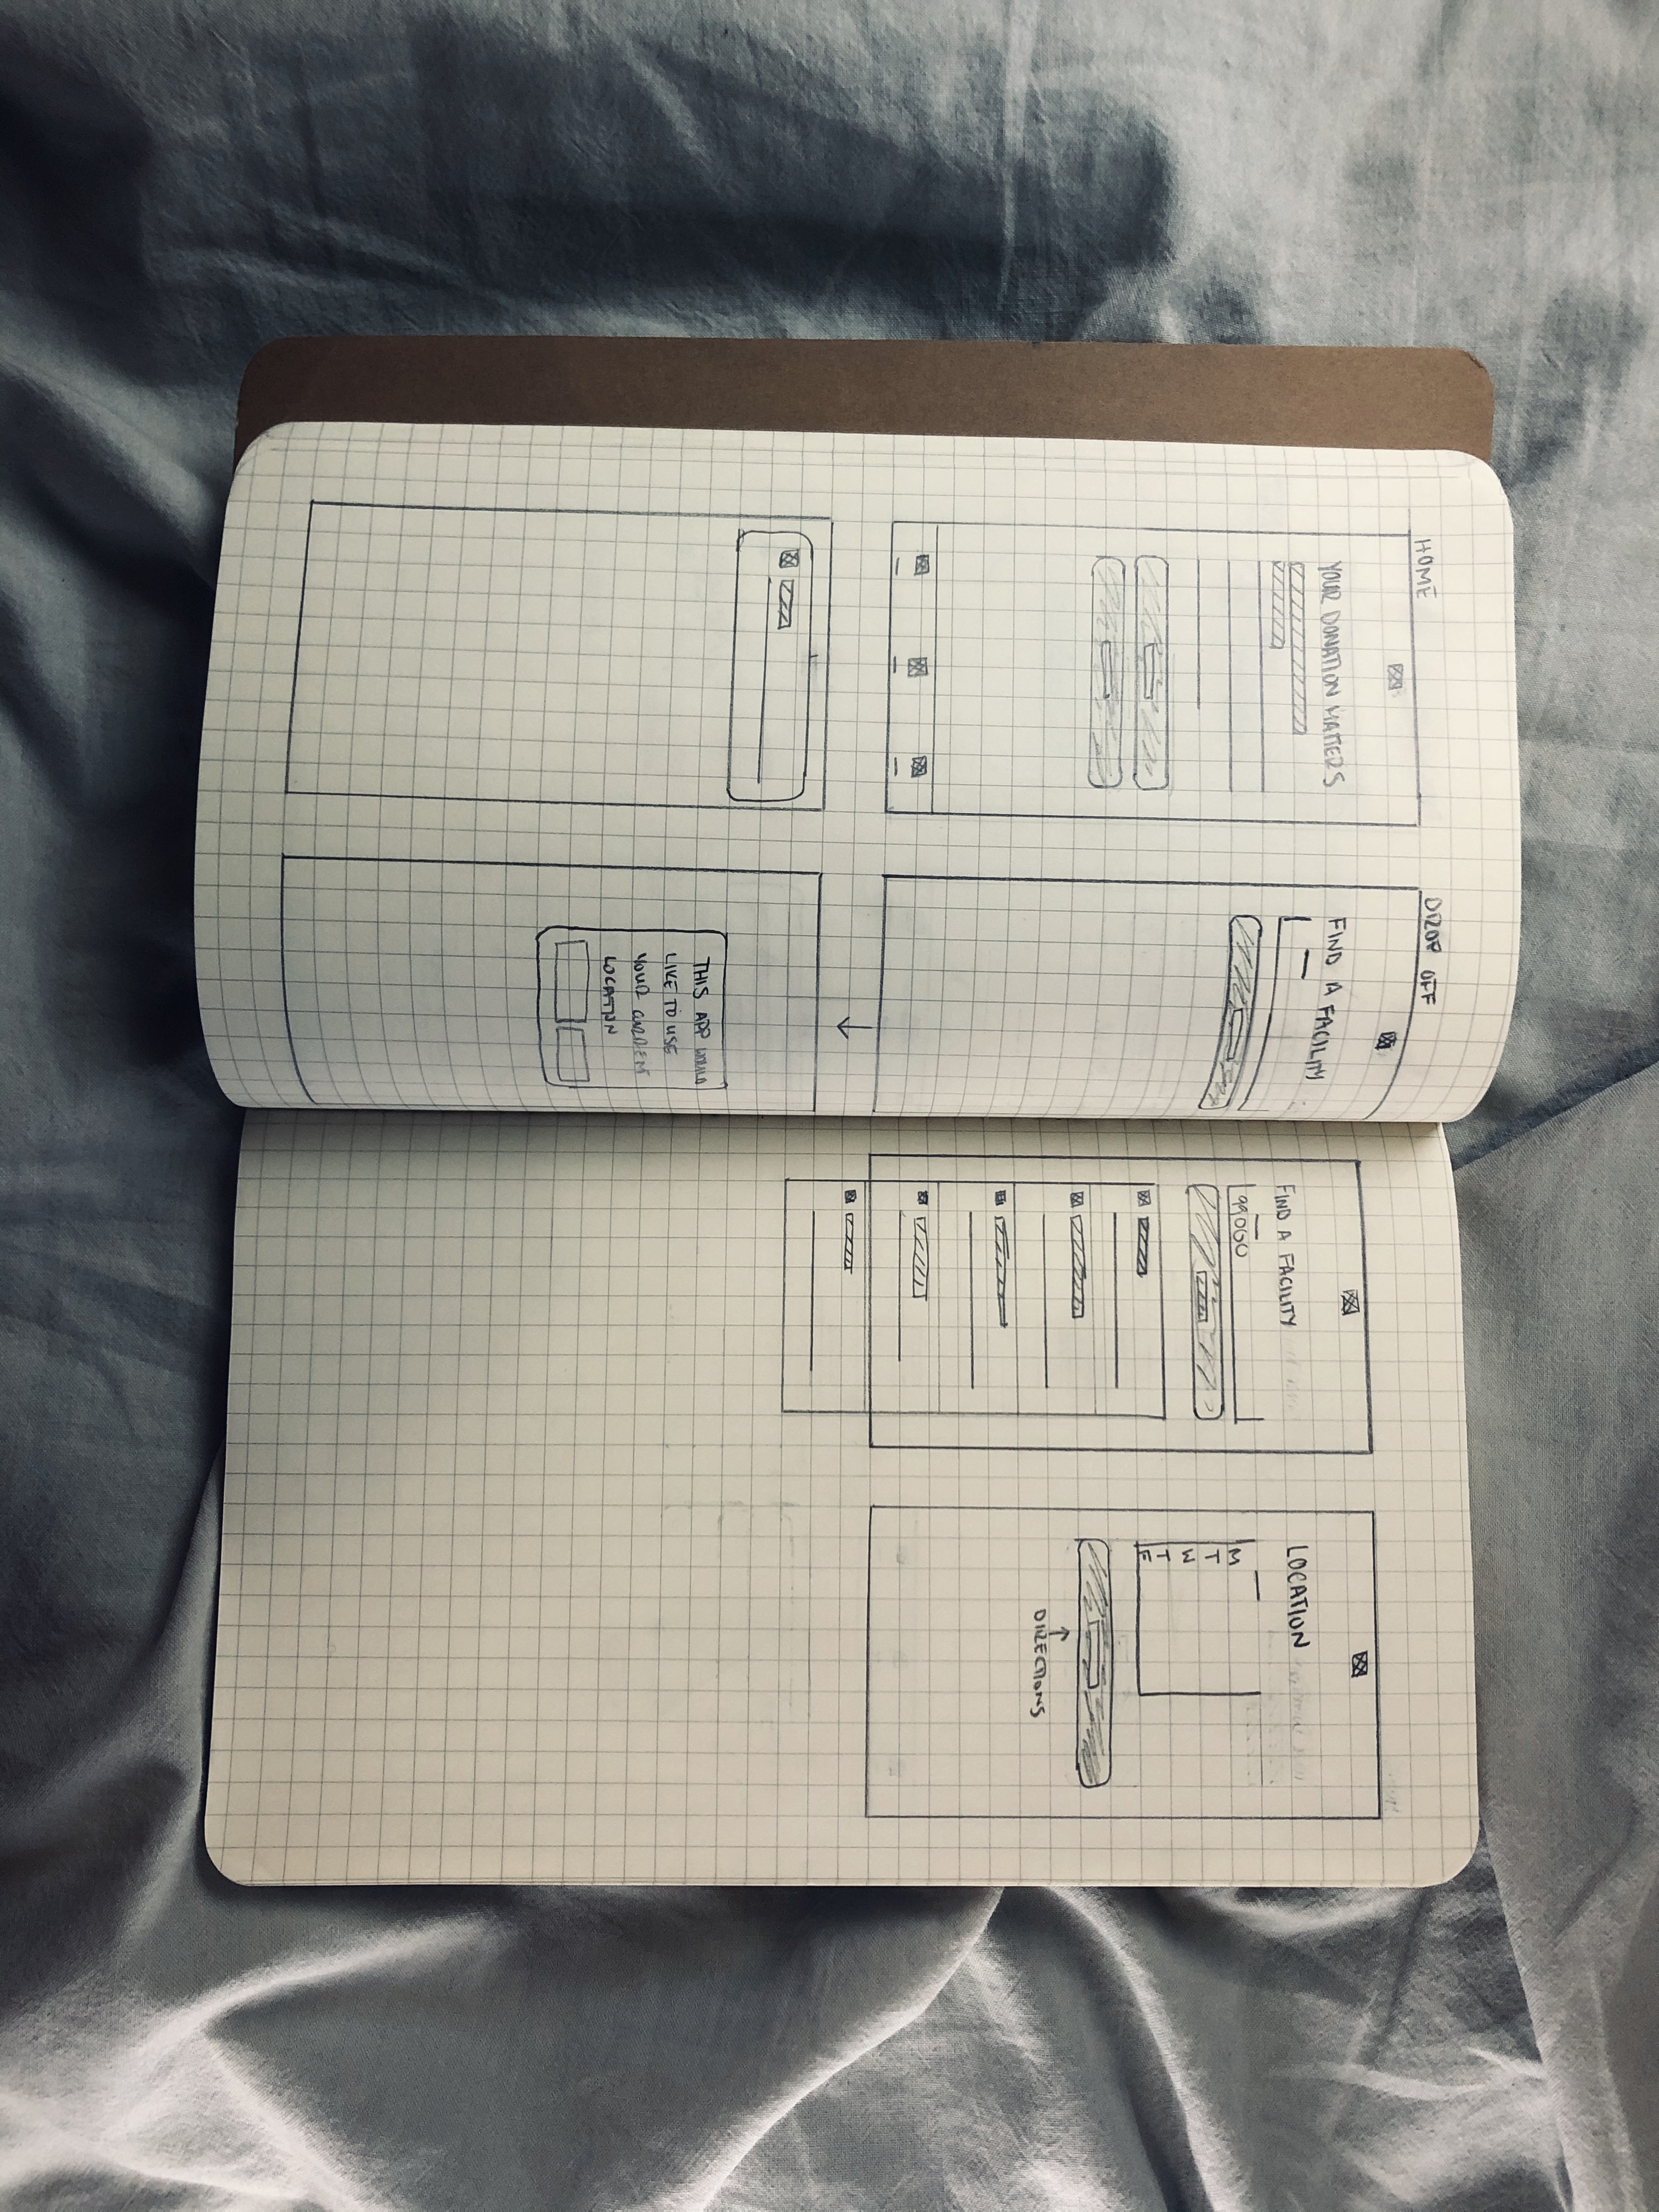 HOME
YOUR DONATION MATTERS
DROP OFF
FIND A FACILITY
THIS APP WOULD
LIKE TO USE
YOUR CURRENT
LOCATION
FIND A FACILITY
99060
LOCATION
M
T
W
T
F
DIRECTIONS